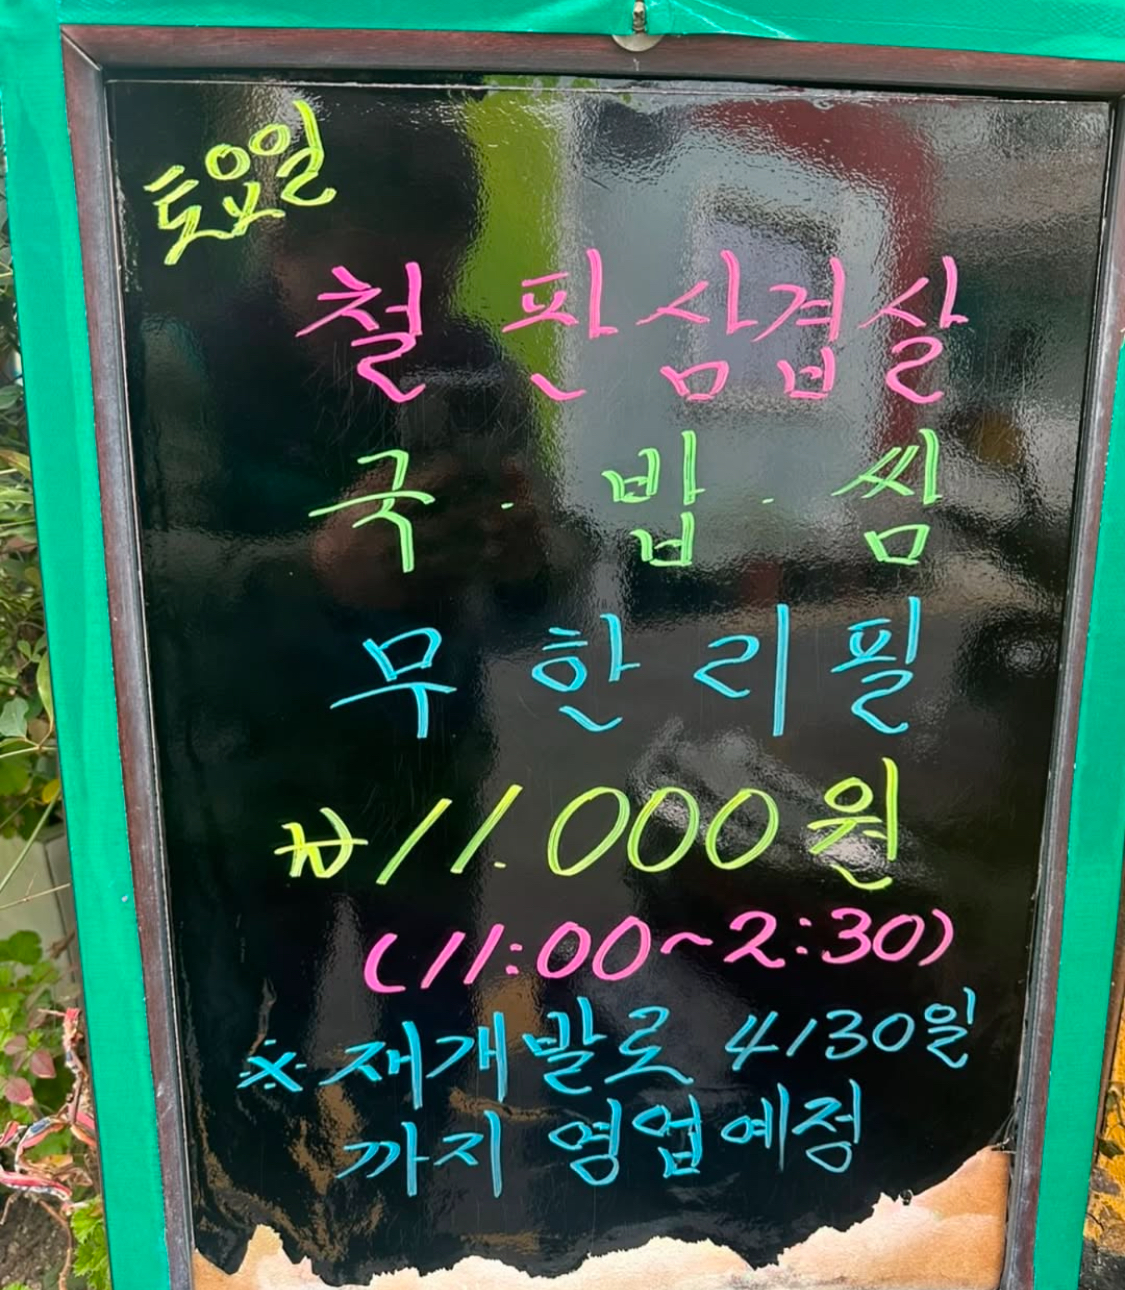 토요일
철판삼겹살
국·밥·쌈
무한리필
₩11.000원
(11:00~2:30)
※재개발로 4/30일
까지 영업예정